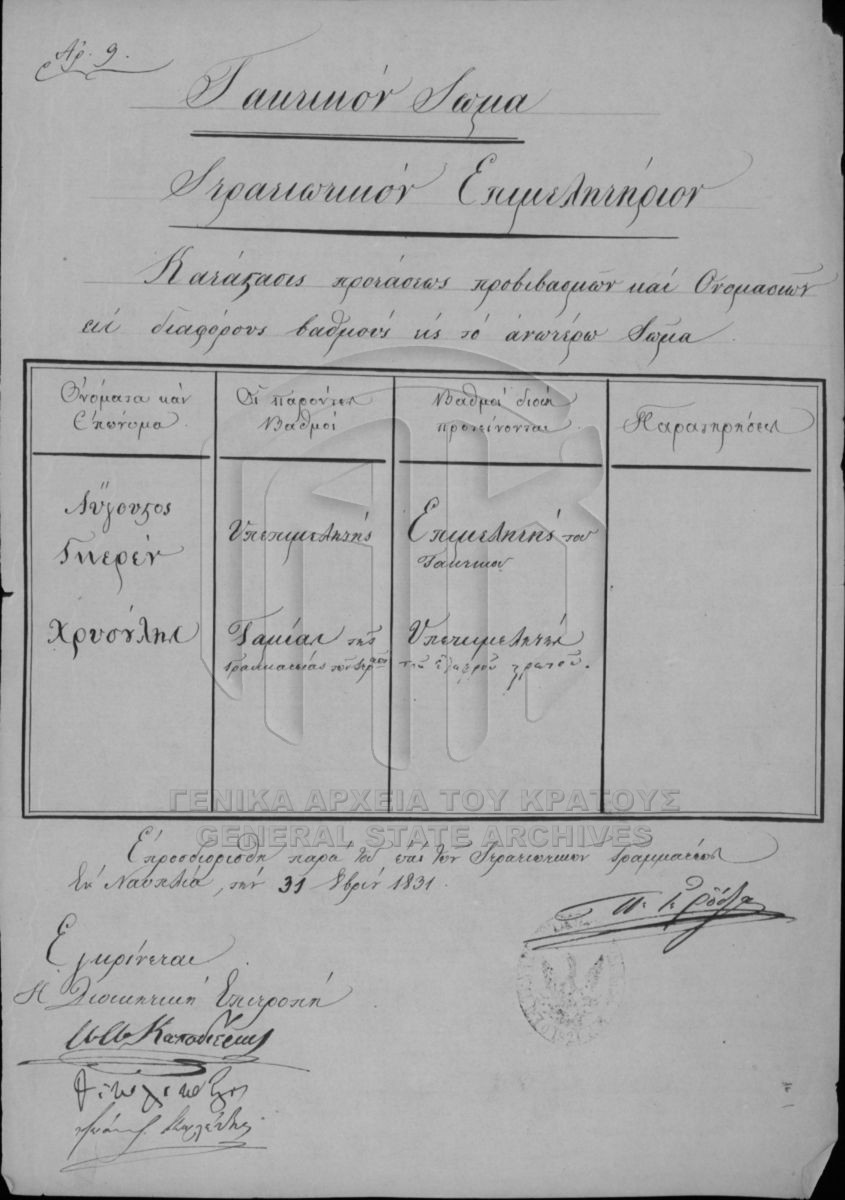 Αρ. 9.
Τακτικόν Σωμα
Στρατιωτικόν Επιμελητήριον
Κατάστασις προτάσεως προβιβασμών και Ονομασιών
εις διαφόρους βαθμούς εις το ανωτέρω Σώμα
Ονόματα και
Επώνυμα
Οι παρόντες
Βαθμοί
Βαθμοί
προτείνονται
Παρατηρήσεις
Αύγουστος
Γκερέν
Υπεπιμελητής
Επιμελητής του
Τακτικου
Χρυσούλης
Ταμίας της
Γραμματείας των Στρατ
Υπεπιμελητής
του Ελαφρού στρατού.
ΓΕΝΙΚΑ ΑΡΧΕΙΑ ΤΟΥ ΚΡΑΤΟΥΣ
GENERAL STATE ARCHIVES
Επροσδιορίσθη παρά του επί των Στρατιωτικων Γραμματέως
Εν Ναυπλία, την 31 8βρίου 1831.
Π. Γ. Ρόδιος
Εγκρίνεται
Η Διοικητική Επιτροπή
Καποδίστριας